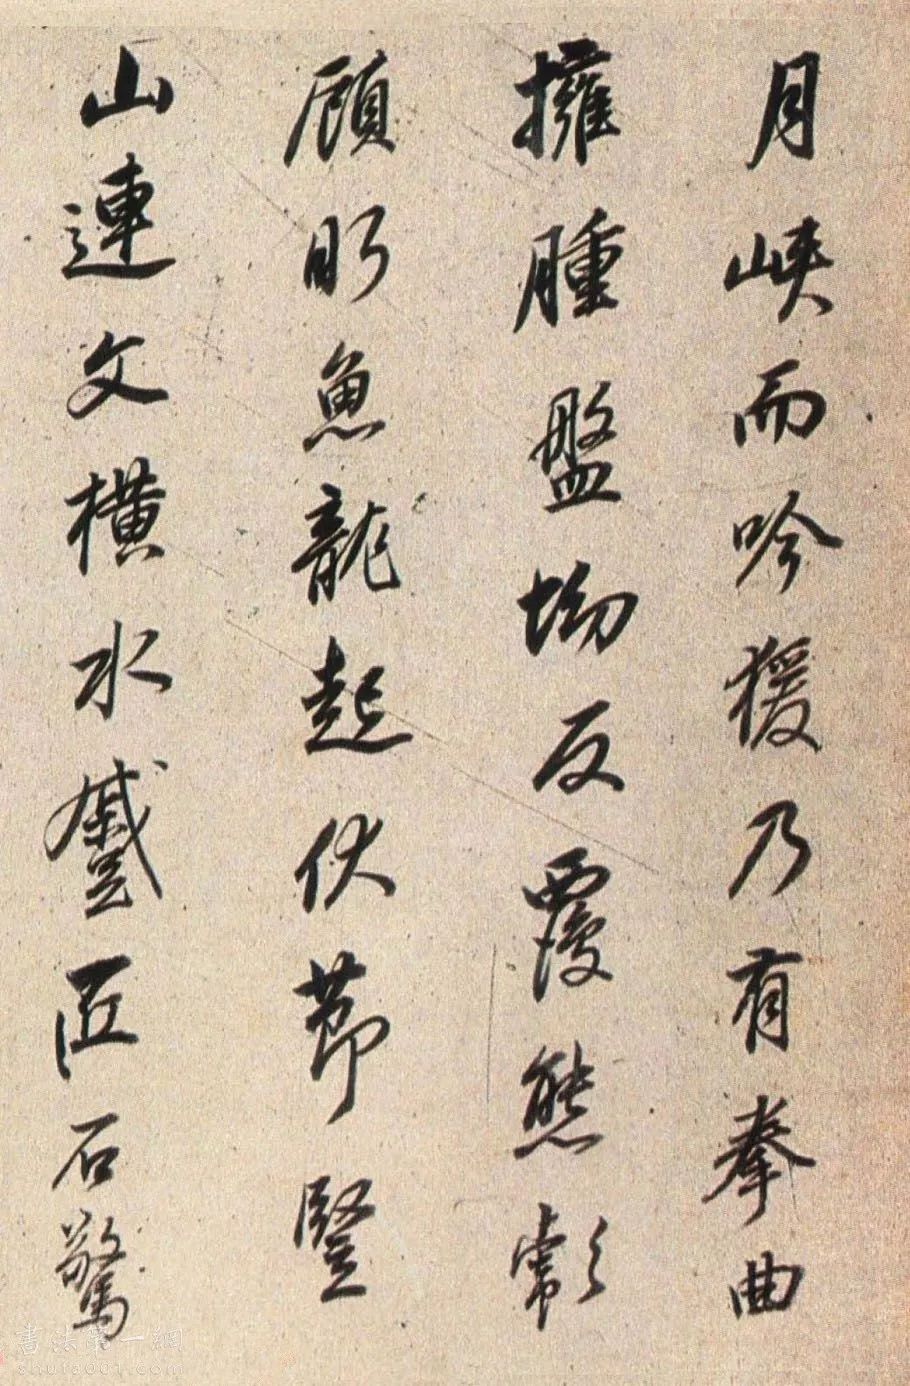 月峽而吟猨乃有拳曲
擁腫盤坳反覆熊彪
顧眄魚龍起伏節豎
山連文橫水蹙匠石驚
書法第一網
shufa001.com